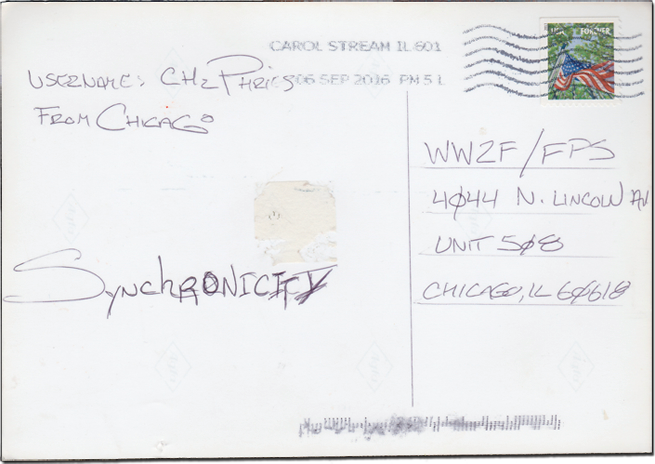 CAROL STREAM IL 601
06 SEP 2016 PM 5 L
USA FOREVER
USERNAME: CHzPhries
FROM CHICAGO
SynchRONICITY
WWZF/FPS
4044 N. LINCOLN AV
UNIT 508
CHICAGO, IL 60618